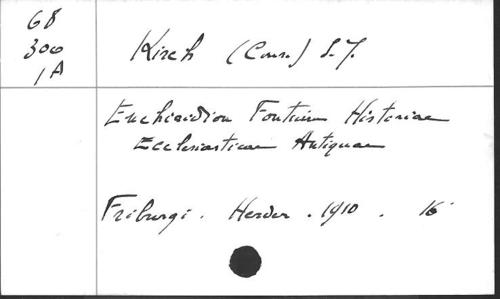 68
300
1A
Kirch (Conr.) S. J.
Enchiridion Fontium Historiae
Ecclesiasticae Antiquae
Friburgi. Herder. 1910. 16°